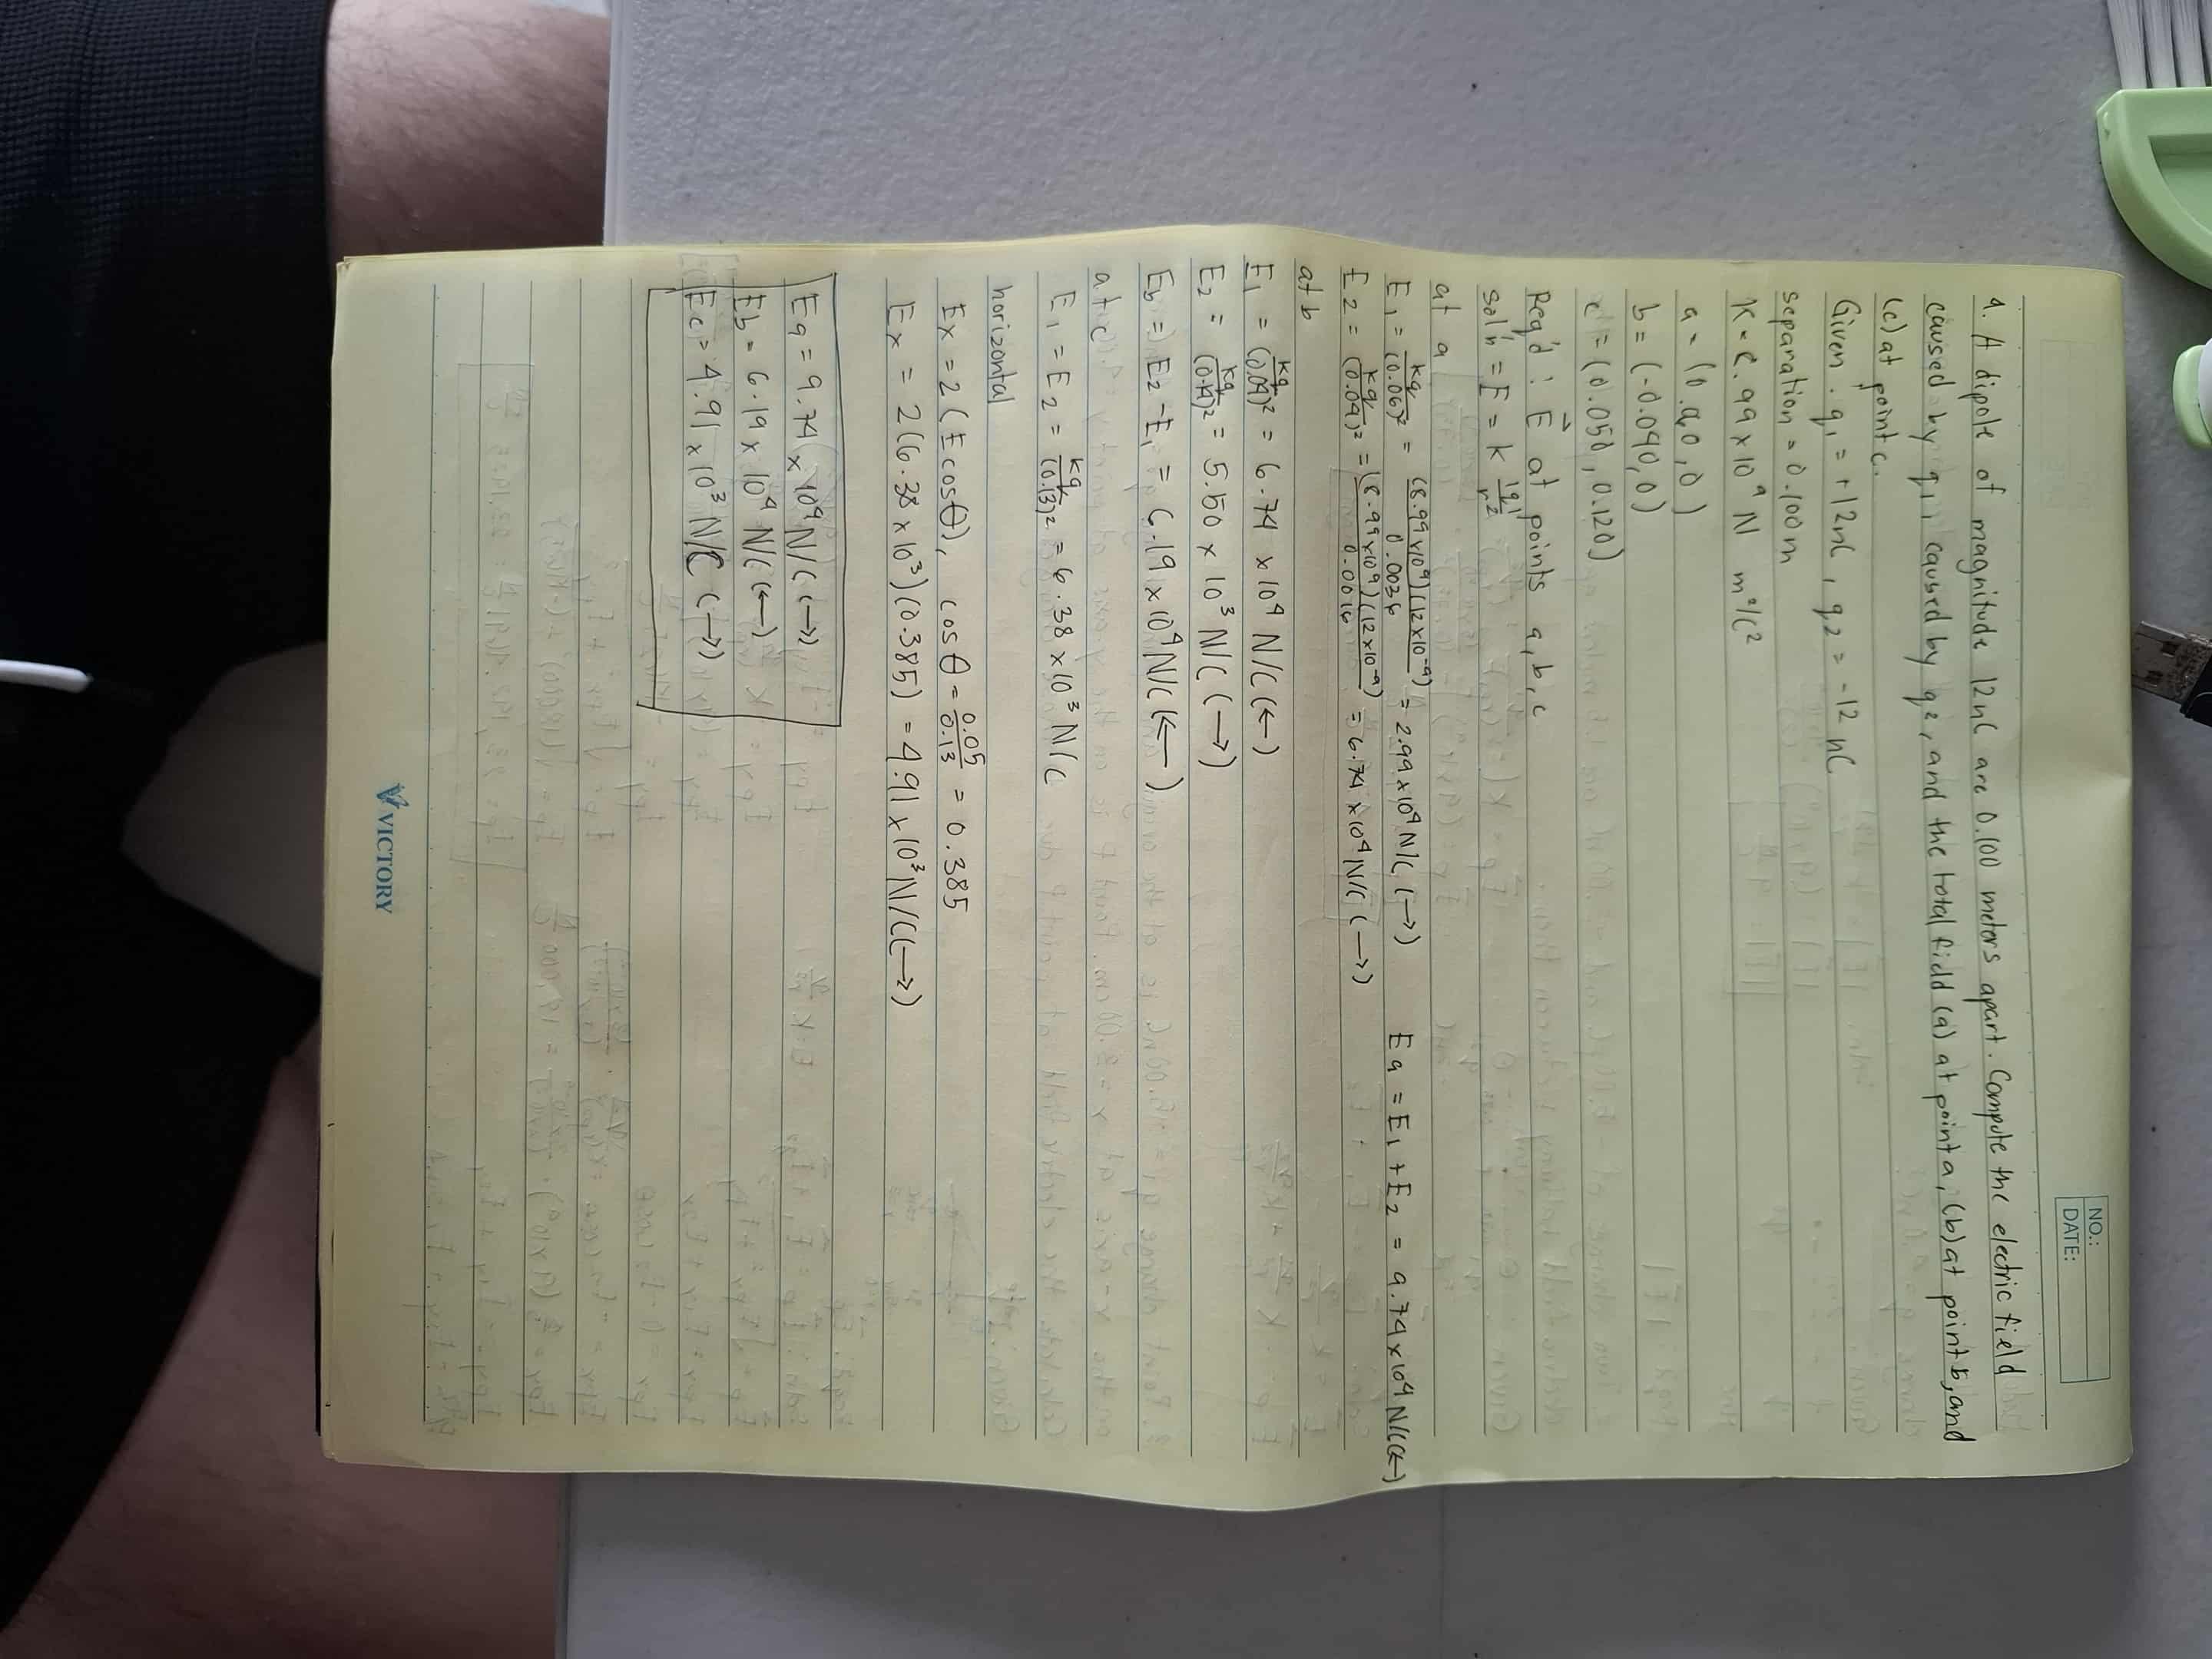 NO.:
DATE:
4. A dipole of magnitude 12nC are 0.100 meters apart. Compute the electric field
caused by q1, caused by q2, and the total field (a) at point a, (b) at point b, and
(c) at point c.
Given: q1 = +12nC, q2 = -12 nC
separation = 0.100m
K = 8.99 x 10^9 N m²/C²
a = (0.060, 0)
b = (-0.040, 0)
c = (0.050, 0.120)
Req'd: E⃗ at points a, b, c
sol'n = E = K |q|/r²
at a
E1 = kq/(0.06)² = (8.99 x10⁹)(12x10⁻⁹)/0.0036 = 2.99 x10⁴ N/C (→) Ea = E1 + E2 = 9.74 x 10⁴ N/C(←)
E2 = kq/(0.04)² = (8.99 x10⁹)(12x10⁻⁹)/0.0016 = 6.74 x10⁴ N/C (→)
at b
E1 = kq/(0.04)² = 6.74 x10⁴ N/C (←)
E2 = kq/(0.14)² = 5.50 x 10³ N/C (→)
Eb = E2 - E1 = 6.19 x10⁴ N/C (←)
at c
E1 = E2 = kq/(0.13)² = 6.38 x10³ N/C
horizontal
Ex = 2(Ecosθ), cosθ = 0.05/0.13 = 0.385
Ex = 2(6.38 x 10³)(0.385) = 4.91 x 10³ N/C(→)
Ea = 9.74 x 10⁴ N/C (→)
Eb = 6.19 x 10⁴ N/C (←)
Ec = 4.91 x 10³ N/C (→)
VICTORY